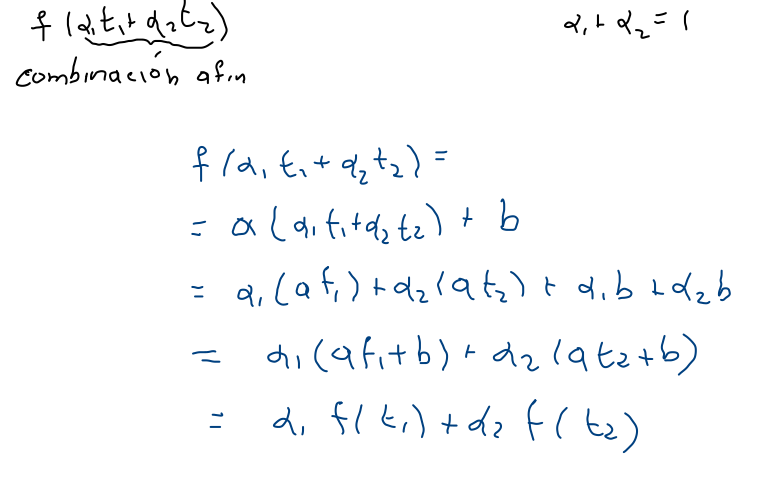 f(α₁t₁+α₂t₂) α₁+α₂=1
combinación afin
f(α₁t₁+α₂t₂)=
= a(α₁t₁+α₂t₂)+b
= α₁(at₁)+α₂(at₂)+α₁b+α₂b
= α₁(at₁+b)+α₂(at₂+b)
= α₁f(t₁)+α₂f(t₂)